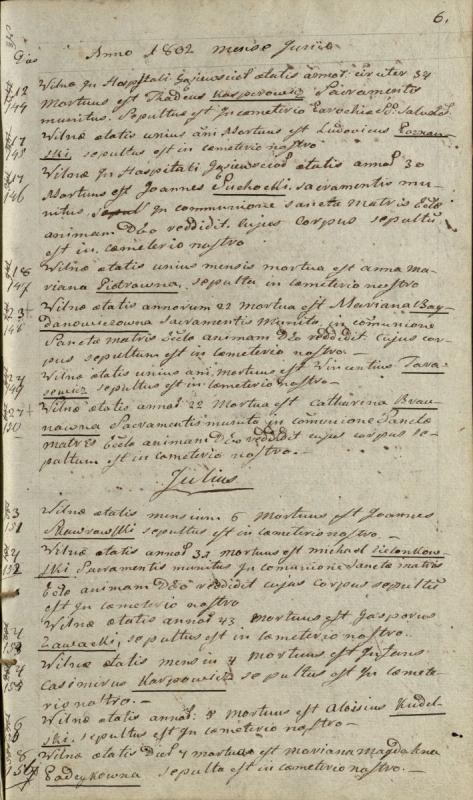 6.
Dies Anno 1802 mense Junio
12 Wilnæ In Hospitali ætatis annor. circiter 34
144 Mortuus est Thadeus Kasperowicz Sacramentis
munitus. Sepultus est In cœmeterio
17 Wilnæ ætatis unius ani Mortuus est Ludovicus Poznan
145 ski sepultus est in cœmeterio nostro
17 Wilnæ In Hospitali ætatis annor. 30
146 Mortuus est Joannes Suchocki. sacramentis mu-
nitus. In communione sanctæ Matris Eclæ
animam Deo reddidit. Cujus corpus sepultu
est in cœmeterio nostro
18 Wilnæ ætatis unius mensis mortua est anna Ma-
147 riana Pietrowna, sepulta in cœmeterio nostro
23 Wilnæ ætatis annorum 22 mortua est Mariana Bay-
148 danowiczowna Sacramentis Munita, in comunione
Sanctæ matris Eclæ animam Deo reddidit Cujus cor-
pus sepultum est in cœmeterio nostro. —
24 Wilnæ ætatis unius ani, mortuus est Vincentius Tara-
149 sewicz sepultus est in cœmeterio nostro —
27 Wilnæ ætatis annor. 22 Mortua est Catharina Brau-
150 nowna Sacramentis munita in comunione Sanctæ
matris Eclæ animam Deo reddidit cujus corpus se-
pultum est in cœmeterio nostro. —
Julius
3 Wilnæ ætatis mensium 6 Mortuus est Joannes
151 Skawrowski sepultus est in cœmeterio nostro —
4 Wilnæ ætatis annor. 32 mortuus est michael Zielonkow-
152 ski Sacramentis munitus In comunione Sanctæ matris
Eclæ animam Deo reddidit cujus corpus sepultu
est In cœmeterio nostro
4 Wilnæ ætatis annor. 43 mortuus est Gasparus
153 Zawacki, sepultus est in cœmeterio nostro.
4 Wilnæ ætatis mensiu 4 mortuus est Infans
154 Casimirus Karpowicz sepultus est In cœmete-
rio nostro. —
6 Wilnæ ætatis annor. mortuus est Aloisius Kudel-
ski. sepultus est In cœmeterio nostro —
8 Wilnæ ætatis Dier. 4 mortua est mariana Magdalena
156 sepulta est in cœmeterio nostro. —